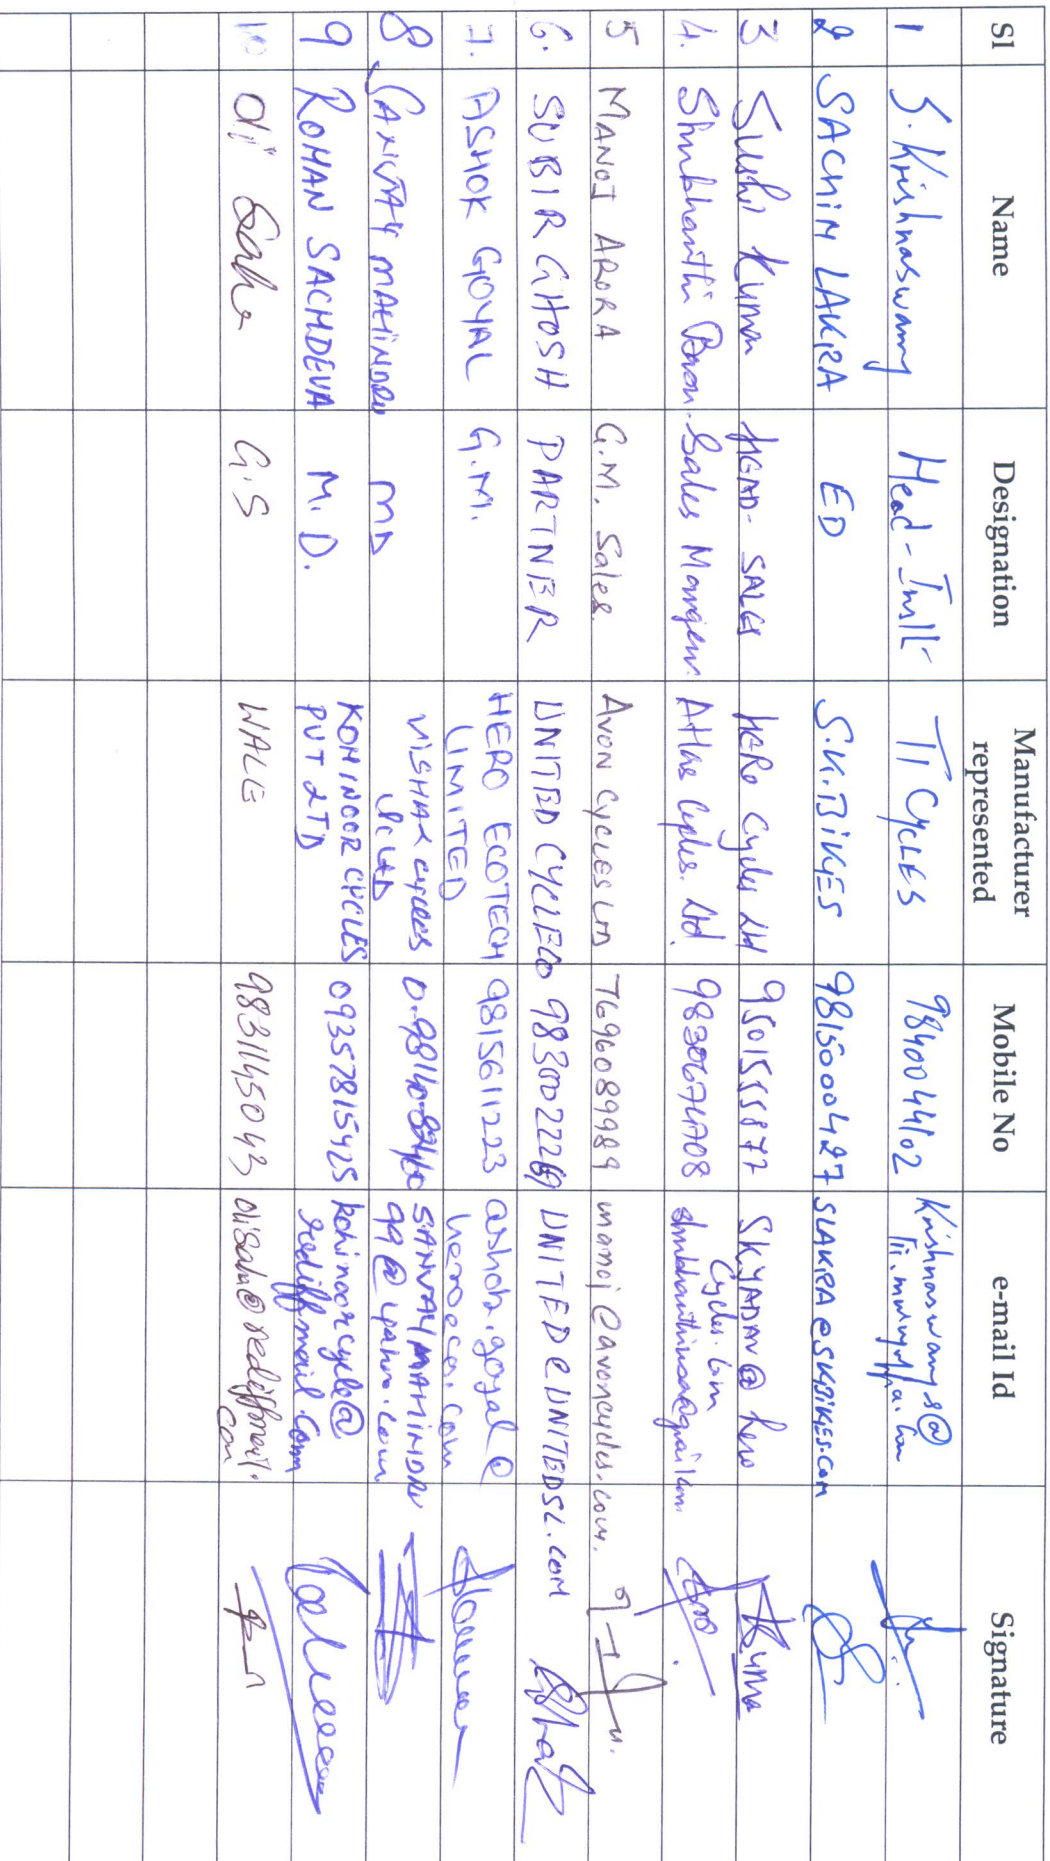 Sl Name Designation Manufacturer represented Mobile No e-mail Id Signature
1 S. Krishnaswamy Head-Instl- TI CYCLES 9840044102 Krishnaswamys@
2 SACHIN LAKRA ED S.K. BIKES 9815000427 SLAKRA@SKBIKES.COM
3 Sushil Kumar HEAD-SALES HERO Cycles Ltd 9501555877 SKYADAV@hero
Cycles.com
4. Sales Manager Atlas Cycles. Ltd. 9830674708
5 MANOJ ARORA G.M. Sales. AVON CYCLES LTD 7696089989 manoj@avoncycles.com.
6. SUBIR GHOSH PARTNER UNITED CYCLE CO UNITED@UNITEDSL.COM
7. ASHOK GOYAL G.M. HERO ECOTECH LIMITED 9815611223 ashok.goyal@
heroeco.com
8 MD VISHAL CYCLES SANVAYMAHINDRU
99@yahoo.com
9 ROHAN SACHDEVA M.D. KOHINOOR CYCLES PVT LTD 09357815425 kohinoorcycle@
rediffmail.com
10 Oli Saha G.S WALE 9831145043 olisaha@rediffmail.
com